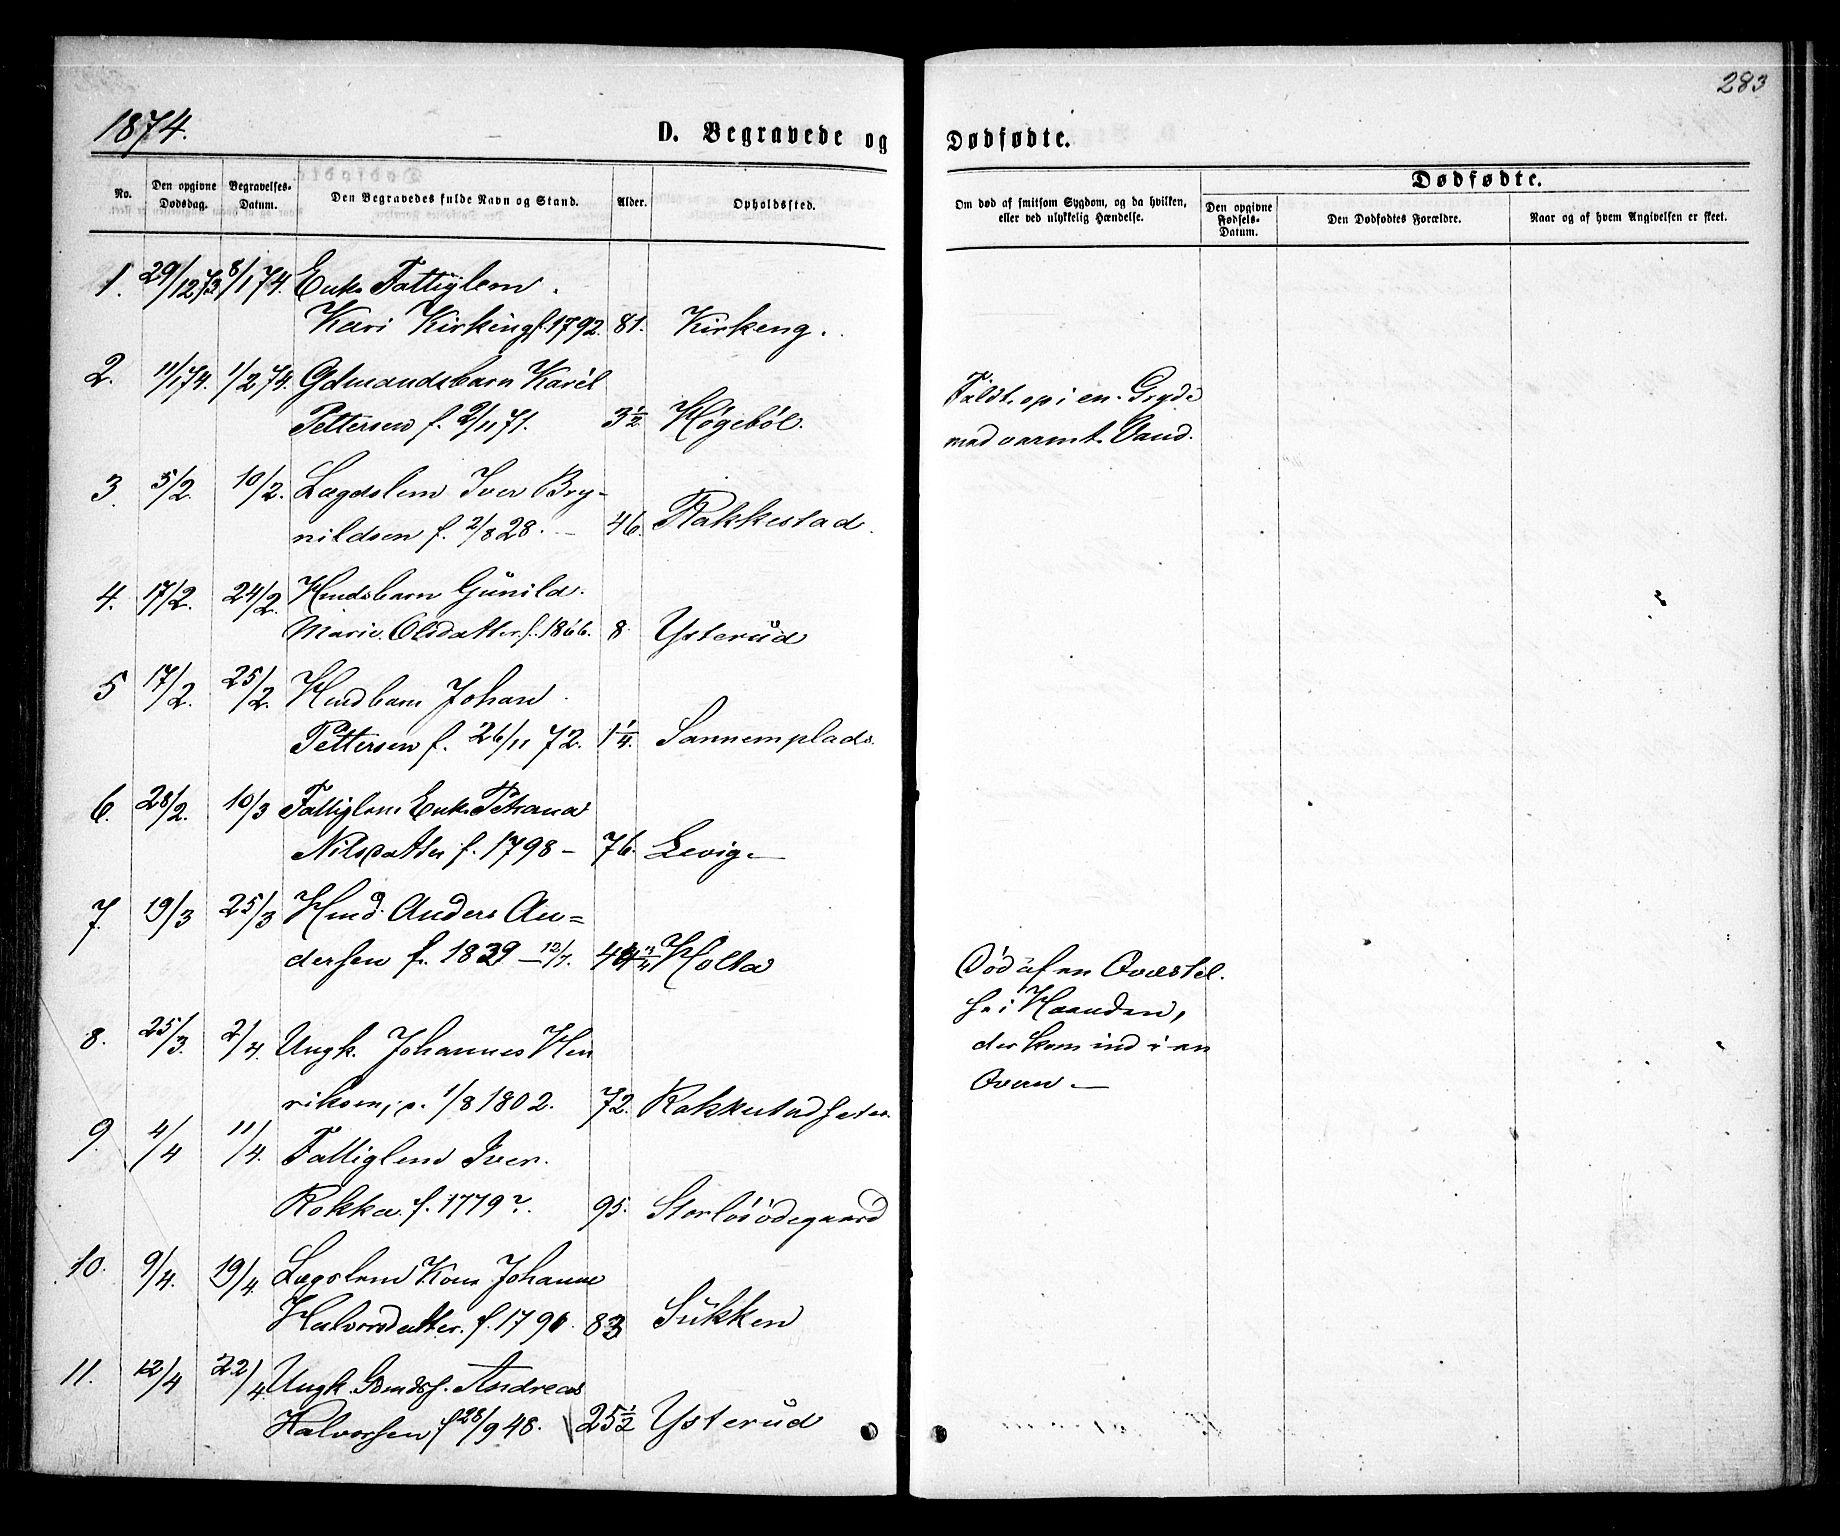 283
1874.
D. Begravede og Dødfødte.
No. Den opgivne Dødsdag. Begravelses-Datum. Den Begravedes fulde Navn og Stand. Alder. Opholdssted. Om død af smitsom Sygdom, og da hvilken, eller ved ulykkelig Hændelse. Dødfødte.
Den opgivne Fødsels-Datum. Den Dødfødtes Forældre. Naar og af hvem Angivelsen er skeet.
1. 29/12 73. 8/1 74. Enke Fattiglem.
Kari Kirkeng f. 1792. 81. Kirkeng.
2. 11/1 74. 1/2 74. Gdmandsbarn Karel
Pettersen f. 2/11 71. 3½ Høgeböl.
Faldt op i en Gryde
med varmt Vand.
3. 5/2. 10/2. Lægdslem Iver Bry-
nildsen f. 2/8 28. - 46. Rakkestad.
4. 17/2. 24/2. Hmdsbarn Gunild
Marie Olsdatter f. 1866. 8 Ysterud
5 17/2. 25/2. Hmdbarn Johan
Pettersen f. 26/11 72. 1¼. Sannemplads.
6. 28/2. 10/3 Fattiglem Enke Petrana
Nilsdatter f. 1798 - 76. Levig -
7. 19/3 25/3 Hmd. Anders An=
dersen f. 1829 - 12/7. Holta
Død af en Qvæstel.
se i Haanden,
der kom ind i en
Oven -
8. 25/3. 2/4. Ungk. Johannes Hen
riksen, f. 1/8 1802. 72. Rakkestadseter
9. 4/4 11/4. Fattiglem Iver.
Rokke f. 1779? 95. Storlösödegaard
10. 9/4. 19/4. Lægslem Kone Johanne
Halvorsdatter. f. 1790 83 Sukken
11. 12/4 22/4. Ungk. Gmds. Andreas
Halvorsen f 28/9 48. 25½ Ysterud